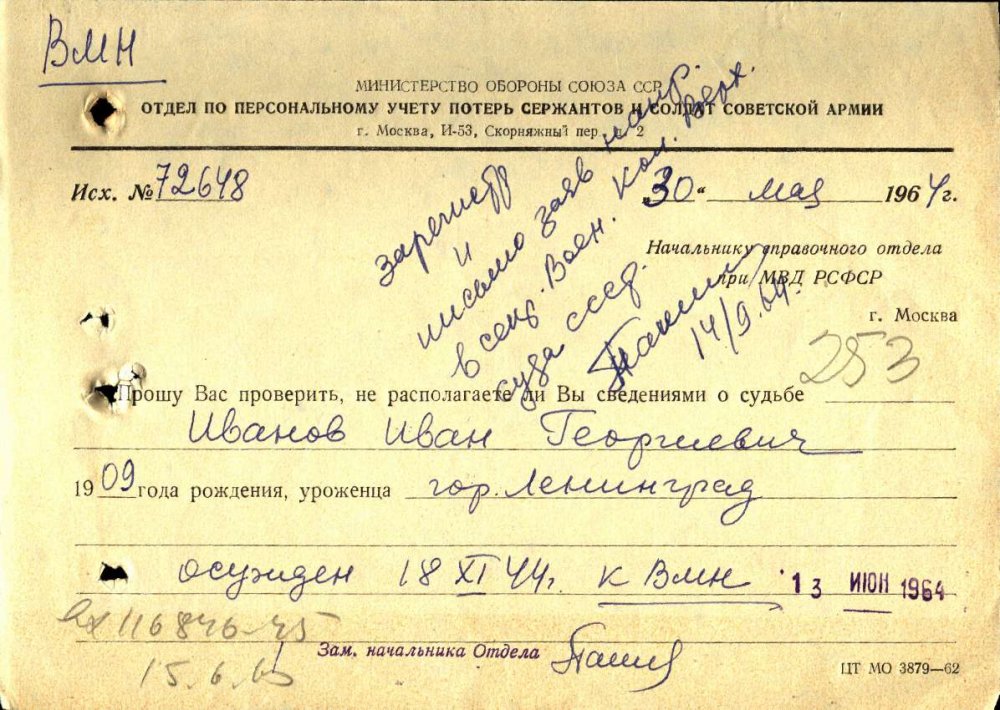 ВМН
МИНИСТЕРСТВО ОБОРОНЫ СОЮЗА ССР
ОТДЕЛ ПО ПЕРСОНАЛЬНОМУ УЧЕТУ ПОТЕРЬ СЕРЖАНТОВ И СОЛДАТ СОВЕТСКОЙ АРМИИ
г. Москва, И-53, Скорняжный пер. 2
Исх. № 72648
„30“ мая 1964 г.
зарегистр
и
письмо заяв направ.
в секр. Воен. Кол. Верх.
суда ссср.
14/9.64.
Начальнику справочного отдела
при МВД РСФСР
г. Москва
253
Прошу Вас проверить, не располагаете ли Вы сведениями о судьбе
Иванов Иван Георгиевич
1909 года рождения, уроженца гор. Ленинград
осужден 18 XI 44 г. к ВМН
13 ИЮН 1964
вх 116846-45
15.6.65
Зам. начальника Отдела
ЦТ МО 3879—62